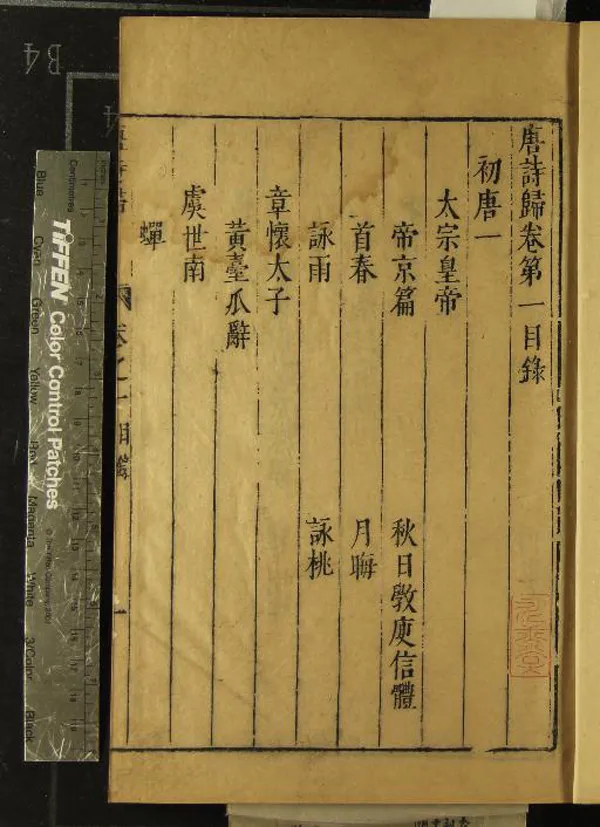 唐詩歸卷第一目錄
初唐一
太宗皇帝
帝京篇 秋日斆庾信體
首春 月晦
詠雨 詠桃
章懷太子
黃臺瓜辭
虞世南
蟬
卷之一 目錄 一
B4
TIFFEN Color Control Patches
Centimetres
Blue
Cyan
Green
Yellow
Red
Magenta
White
3/Color
Black